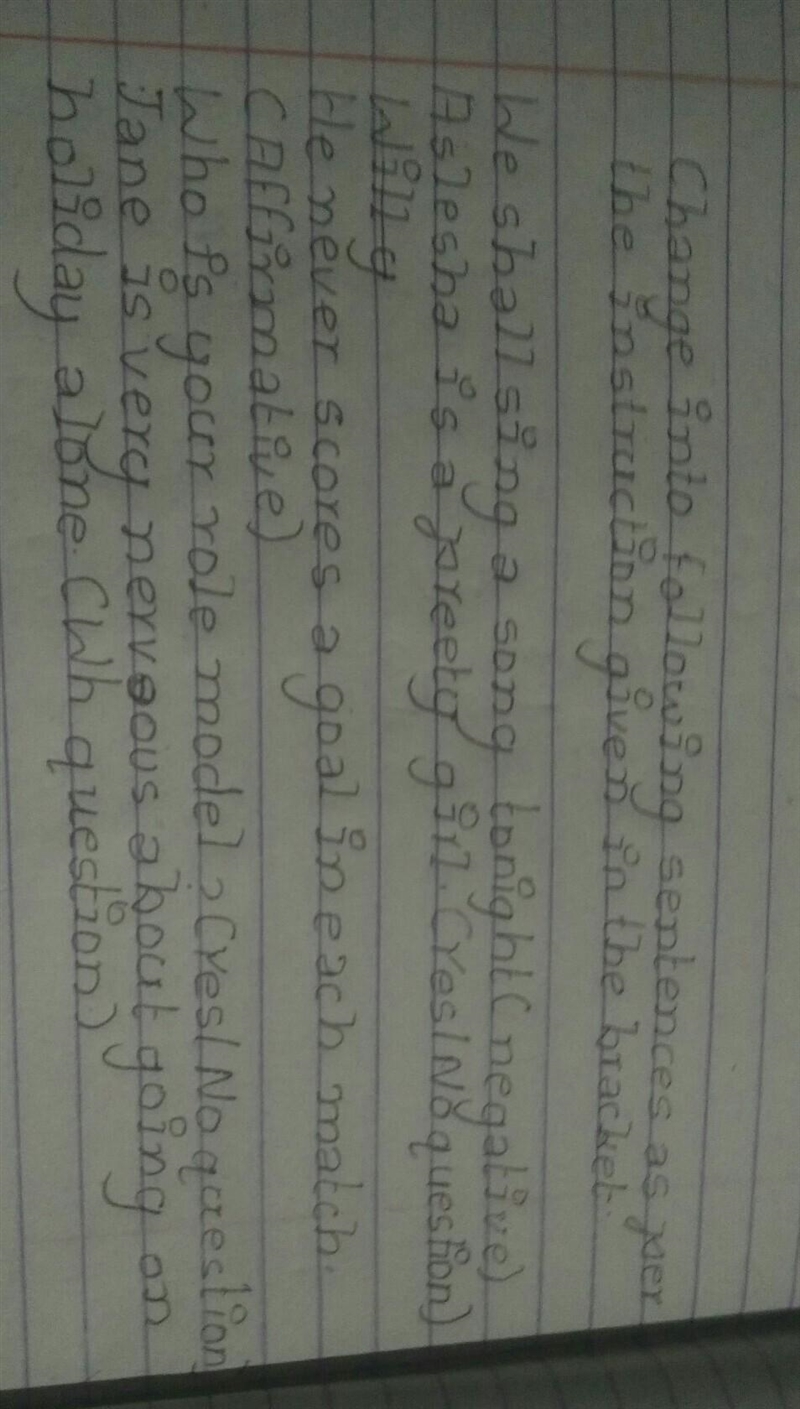 Change into following sentences as per
the instruction given in the bracket.
We shall sing a song tonight (negative)
Aslesha is a preety girl. (Yes/No question)
He never scores a goal in each match.
(Affirmative)
Who is your role model? (Yes/No question)
Jane is very nervous about going on
holiday alone. (Wh question)